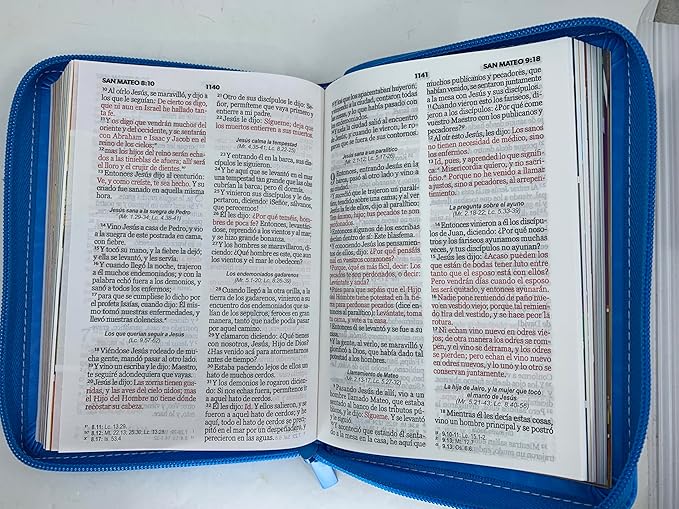 SAN MATEO 8:10
1140
10 Al oírlo Jesús, se maravilló, y dijo a
los que le seguían: De cierto os digo,
que ni aun en Israel he hallado tan-
ta fe.
11 Y os digo que vendrán muchos del
oriente y del occidente, y se sentarán
con Abraham e Isaac y Jacob en el
reino de los cielos;
12 mas los hijos del reino serán echa-
dos a las tinieblas de afuera; allí será
el lloro y el crujir de dientes.
13 Entonces Jesús dijo al centurión:
Ve, y como creíste, te sea hecho. Y su
criado fue sanado en aquella misma
hora.
Jesús sana a la suegra de Pedro
(Mr. 1.29-34; Lc. 4.38-41)
14 Vino Jesús a casa de Pedro, y vio
a la suegra de este postrada en cama,
con fiebre.
15 Y tocó su mano, y la fiebre la dejó;
y ella se levantó, y les servía.
16 Y cuando llegó la noche, trajeron
a él muchos endemoniados; y con la
palabra echó fuera a los demonios, y
sanó a todos los enfermos;
17 para que se cumpliese lo dicho por
el profeta Isaías, cuando dijo: Él mis-
mo tomó nuestras enfermedades, y
llevó nuestras dolencias.
Los que querían seguir a Jesús
(Lc. 9.57-62)
18 Viéndose Jesús rodeado de mu-
cha gente, mandó pasar al otro lado.
19 Y vino un escriba y le dijo: Maestro,
te seguiré adondequiera que vayas.
20 Jesús le dijo: Las zorras tienen gua-
ridas, y las aves del cielo nidos; mas
el Hijo del Hombre no tiene dónde
recostar su cabeza.
8.11: Lc. 13.29.
8.12: Mt. 22.13; 25.30; Lc. 13.28.
Is. 53.4.
21 Otro de sus discípulos le dijo: Se-
ñor, permíteme que vaya primero y
entierre a mi padre.
22 Jesús le dijo: Sígueme; deja que
los muertos entierren a sus muertos.
Jesús calma la tempestad
(Mr. 4.35-41; Lc. 8.22-25)
23 Y entrando él en la barca, sus dis-
cípulos le siguieron.
24 Y he aquí que se levantó en el mar
una tempestad tan grande que las olas
cubrían la barca; pero él dormía.
25 Y vinieron sus discípulos y le des-
pertaron, diciendo: ¡Señor, sálvanos,
que perecemos!
26 Él les dijo: ¿Por qué teméis, hom-
bres de poca fe? Entonces, levantán-
dose, reprendió a los vientos y al mar;
y se hizo grande bonanza.
27 Y los hombres se maravillaron,
diciendo: ¿Qué hombre es este, que
aun los vientos y el mar le obedecen?
Los endemoniados gadarenos
(Mr. 5.1-20; Lc. 8.26-39)
28 Cuando llegó a la otra orilla, a la
tierra de los gadarenos, vinieron a su
encuentro dos endemoniados que sa-
lían de los sepulcros, feroces en gran
manera, tanto que nadie podía pasar
por aquel camino.
29 Y clamaron diciendo: ¿Qué tienes
con nosotros, Jesús, Hijo de Dios?
¿Has venido acá para atormentarnos
antes de tiempo?
30 Estaba paciendo lejos de ellos un
hato de muchos cerdos.
31 Y los demonios le rogaron diciendo:
Si nos echas fuera, permítenos ir
a aquel hato de cerdos.
32 Él les dijo: Id. Y ellos salieron, y se
fueron a aquel hato de cerdos; y he
aquí, todo el hato de cerdos se preci-
pitó en el mar por un despeñadero, y
perecieron en las aguas.
1141
SAN MATEO 9:18
que los apacentaban huyeron,
a la ciudad, contaron todas
y lo que había pasado con
toda la ciudad salió al encuentro
Jesús; y cuando le vieron, le ro-
que se fuera de sus contornos.
Jesús sana a un paralítico
9 Entonces, entrando Jesús en la
barca, pasó al otro lado y vino a
su ciudad.
les de ellos, dijo al paralítico: Ten
ánimo, hijo; tus pecados te son
Entonces algunos de los escribas
dentro de sí: Este blasfema.
conociendo Jesús los pensamientos
de ellos, dijo: ¿Por qué pensáis
Porque, ¿qué es más fácil, decir: Los
pecados te son perdonados, o decir:
Levántate y anda?
Pues para que sepáis que el Hijo del
Hombre tiene potestad en la tierra
Entonces él se levantó y se fue a su
casa.
Y la gente, al verlo, se maravilló y
glorificó a Dios, que había dado tal
potestad a los hombres.
Llamamiento de Mateo
(Mr. 2.13-17; Lc. 5.27-32)
Pasando Jesús de allí, vio a un
hombre llamado Mateo, que estaba
sentado al banco de los tributos
públicos, y le dijo: Sígueme. Y se
levantó y le siguió.
10 Y aconteció que estando él senta-
do a la mesa en la casa, he aquí que
muchos publicanos y pecadores, que
habían venido, se sentaron juntamente
a la mesa con Jesús y sus discípulos.
11 Cuando vieron esto los fariseos, di-
jeron a los discípulos: ¿Por qué come
vuestro Maestro con los publicanos y
pecadores?
12 Al oír esto Jesús, les dijo: Los sanos
no tienen necesidad de médico, sino
los enfermos.
13 Id, pues, y aprended lo que significa:
Misericordia quiero, y no sacrifi-
cio. Porque no he venido a llamar a
justos, sino a pecadores, al arrepenti-
miento.
La pregunta sobre el ayuno
(Mr. 2.18-22; Lc. 5.33-39)
14 Entonces vinieron a él los discípu-
los de Juan, diciendo: ¿Por qué noso-
tros y los fariseos ayunamos muchas
veces, y tus discípulos no ayunan?
15 Jesús les dijo: ¿Acaso pueden los
que están de bodas tener luto entre
tanto que el esposo está con ellos?
Pero vendrán días cuando el esposo
les será quitado, y entonces ayunarán.
16 Nadie pone remiendo de paño nue-
vo en vestido viejo; porque tal remien-
do tira del vestido, y se hace peor la
rotura.
17 Ni echan vino nuevo en odres vie-
jos; de otra manera los odres se rom-
pen, y el vino se derrama, y los odres
se pierden; pero echan el vino nuevo
en odres nuevos, y lo uno y lo otro se
conservan juntamente.
La hija de Jairo, y la mujer que tocó
el manto de Jesús
(Mr. 5.21-43; Lc. 8.40-56)
18 Mientras él les decía estas cosas,
vino un hombre principal y se postró
9.10-11: Lc. 15.1-2.
9.13: Mt. 12.7.
9.13: Os. 6.6.